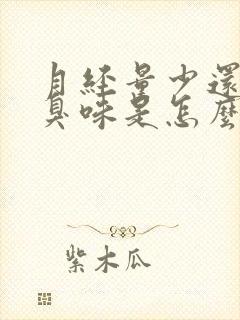 月經量少還
臭味是怎麼
紫木瓜